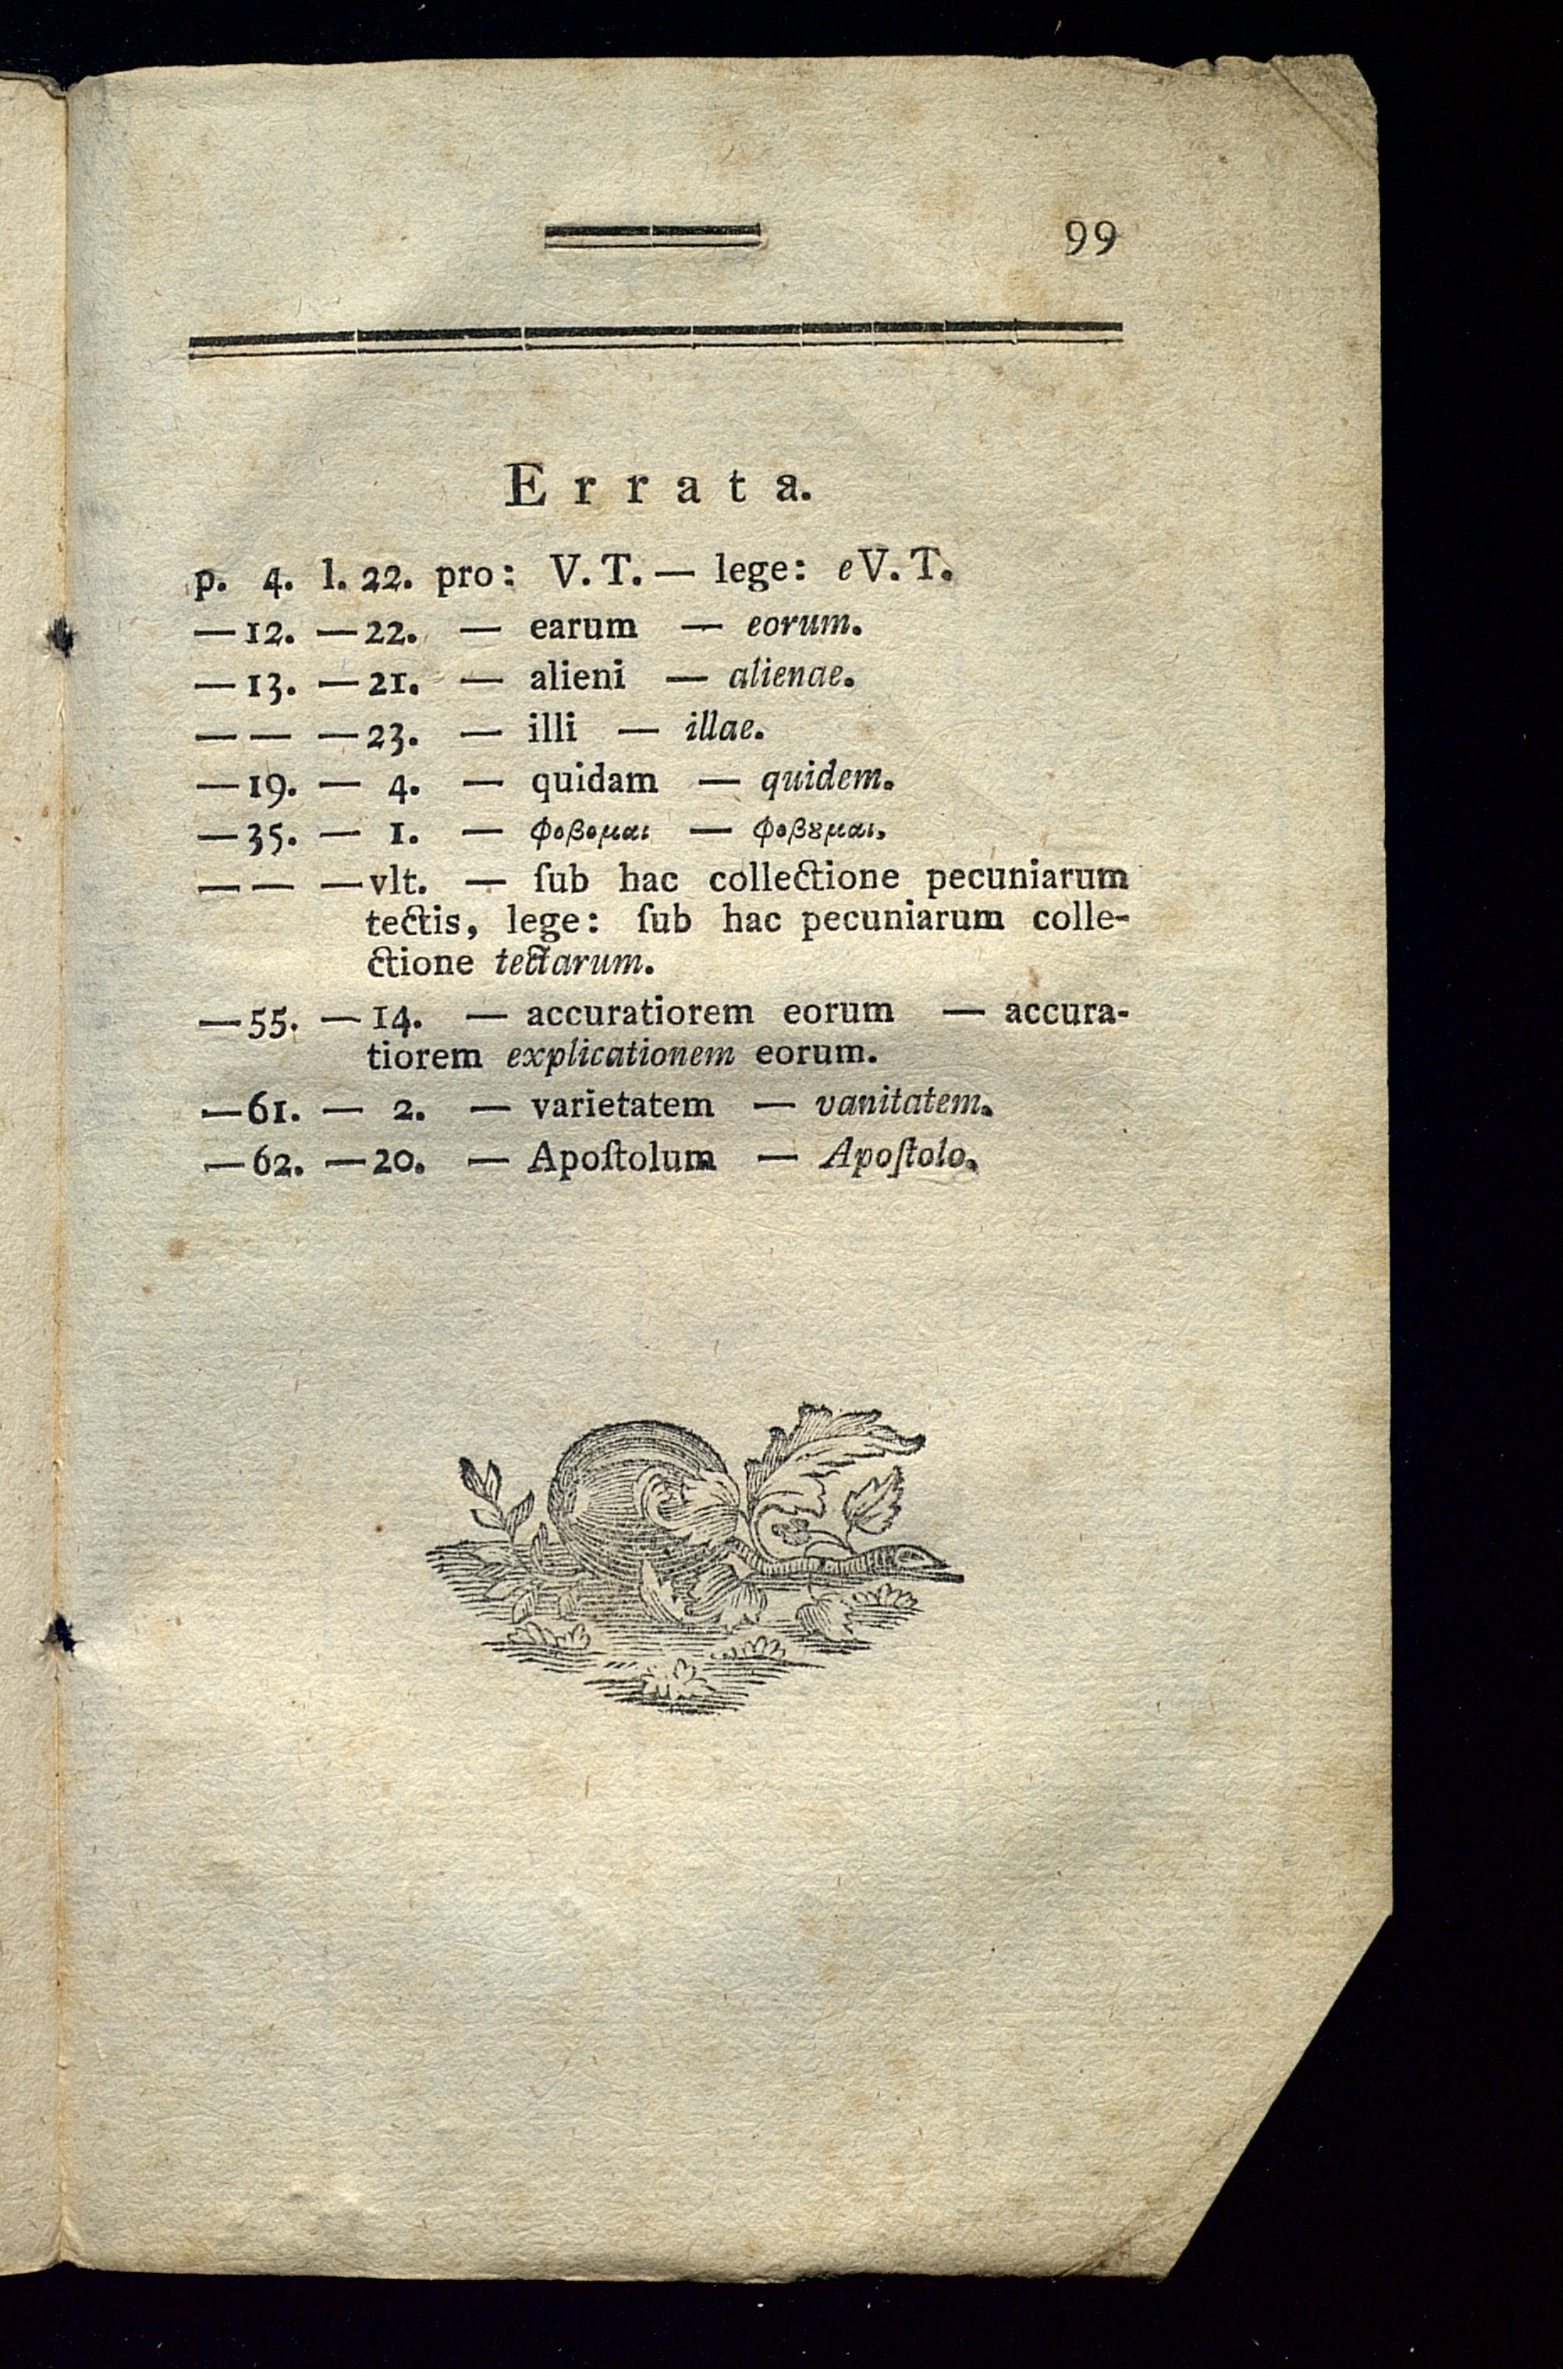 99
Errata.
p. 4. l. 22. pro: V. T. — lege: e V. T.
— 12. — 22. — earum — eorum.
— 13. — 21. — alieni — alienae.
— — — 23. — illi — illae.
— 19. — 4. — quidam — quidem.
— 35. — 1. — φοβομαι — φοβȣμαι.
— — — vlt. — ſub hac collectione pecuniarum
tectis, lege: ſub hac pecuniarum colle-
ctione tectarum.
— 55. — 14. — accuratiorem eorum — accura-
tiorem explicationem eorum.
— 61. — 2. — varietatem — vanitatem.
— 62. — 20. — Apoſtolum — Apoſtolo.